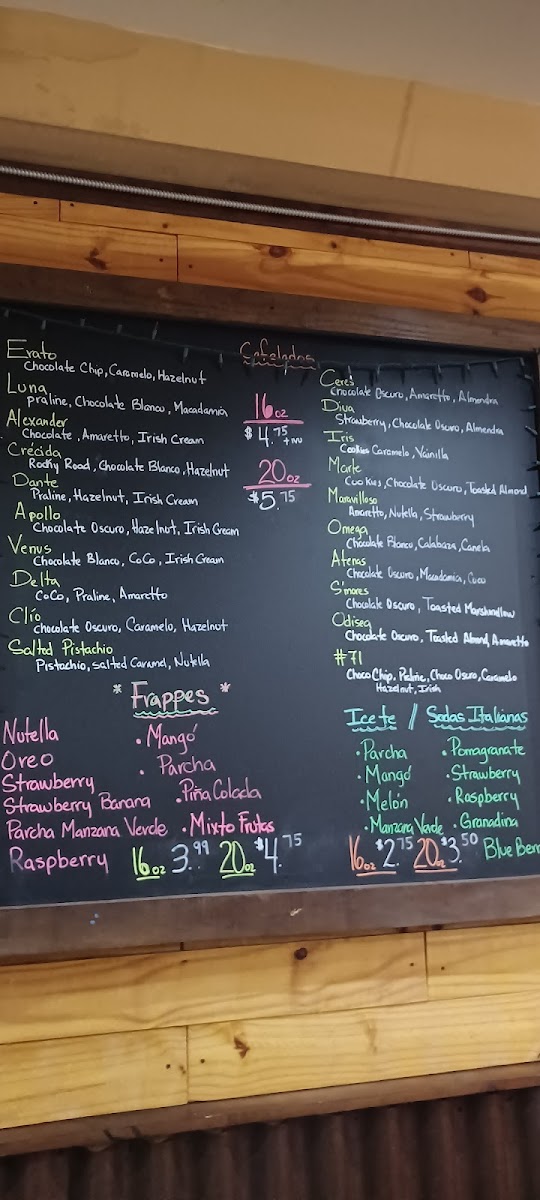 Cafelados
Erato
Chocolate Chip, Caramelo, Hazelnut
Luna
Praline, Chocolate Blanco, Macadamia
Alexander
Chocolate, Amaretto, Irish Cream
Crécida
Rocky Road, Chocolate Blanco, Hazelnut
Dante
Praline, Hazelnut, Irish Cream
Apollo
Chocolate Oscuro, Hazelnut, Irish Cream
Venus
Chocolate Blanco, CoCo, Irish Cream
Delta
CoCo, Praline, Amaretto
Clío
Chocolate Oscuro, Caramelo, Hazelnut
Salted Pistachio
Pistachio, Salted Caramel, Nutella
16oz
$4.75
+ IVU
20oz
$5.75
Ceres
Chocolate Oscuro, Amaretto, Almendra
Diva
Strawberry, Chocolate Oscuro, Almendra
Iris
Cookies Caramelo, Vainilla
Marte
Cookies, Chocolate Oscuro, Toasted Almond
Maravilloso
Amaretto, Nutella, Strawberry
Omega
Chocolate Blanco, Calabaza, Canela
Atenas
Chocolate Oscuro, Macadamia, Coco
S'mores
Chocolate Oscuro, Toasted Marshmallow
Odisea
Chocolate Oscuro, Toasted Almond, Amaretto
#71
Choco Chip, Praline, Choco Oscuro, Caramelo
Hazelnut, Irish
* Frappes *
Nutella
Oreo
Strawberry
Strawberry Banana
Parcha Manzana Verde
Raspberry
• Mangó
• Parcha
• Piña Colada
• Mixto Frutas
16oz 3.99 20oz $4.75
Ice te / Sodas Italianas
• Parcha
• Mangó
• Melón
• Manzana Verde
• Pomagranate
• Strawberry
• Raspberry
• Granadina
16oz $2.75 20oz $3.50